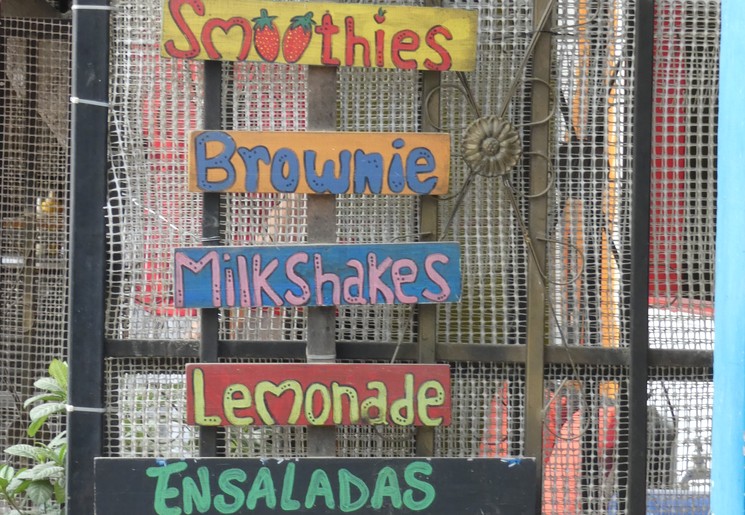 Smoothies
Brownie
Milkshakes
Lemonade
ENSALADAS